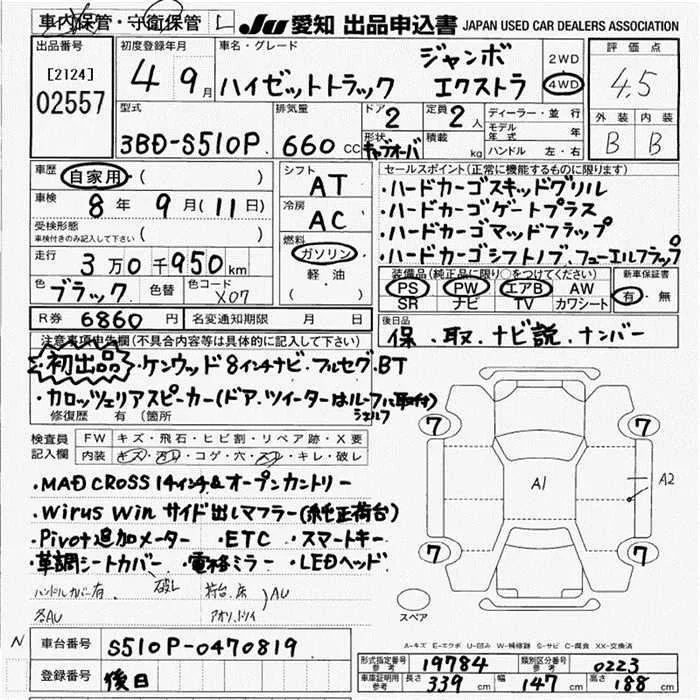 車内保管・守衛保管 L JU 愛知 出品申込書 JAPAN USED CAR DEALERS ASSOCIATION
出品番号 初度登録年月 車名・グレード ジャンボ 2WD 評価点
[2124] 4 9月 ハイゼットトラック エクストラ 4WD 4.5
02557 型式 排気量 ドア 2 定員 2人 ディーラー・並行 外装 内装
3BD-S510P 660 CC 形状 キャブオーバ 積載 kg モデル年式 年 B B
ハンドル 左・右
車歴 自家用・( ) シフト AT セールスポイント(正常に機能するものに限ります)
・ハードカーゴスキッドグリル
車検 8年 9月(11日) 冷房 AC ・ハードカーゴゲートプラス
受検形態 ( ) ・ハードカーゴマッドフラップ
車検付きのみ記入して下さい 燃料 ガソリン ・ハードカーゴシフトノブ、フューエルフラップ
走行 3万0千950km 軽油 装備品(純正品に限り○をつけてください) 新車保証書
( ) PS PW エアB AW 有・無
色 ブラック 色替 色コード X07 SR ナビ TV カワシート
R券 6860円 名変通知期限 月 日 後日品
保、取、ナビ説、ナンバー
注意事項申告欄(不具合内容等は具体的に記入して下さい)
初出品・ケンウッド8インチナビ・フルセグ・BT
・カロッツェリアスピーカー(ドア、ツイーターはルーフシェルフに取付)
修復歴 有 (箇所
検査員記入欄 FW キズ・飛石・ヒビ割・リペア跡・X要
内装 キズ・汚レ・コゲ・穴・スレ・キレ・破レ
・MAD CROSS 14インチ&オープンカントリー
・Wirus Win サイド出しマフラー(純正荷台)
・Pivot追加メーター ・ETC ・スマートキー
・革調シートカバー ・電格ミラー ・LEDヘッド
ハンドルカバー有 破レ 荷台、床 )AU
各AU
7 7
A1 A2
7 7
スペア
A-キズ E-エクボ U-凹み W-補修跡 S-サビ C-腐食 XX-交換済
N 車台番号 S510P-0470819
登録番号 後日
形式指定番号 参考 19784 類別区分番号 参考 0223
車庫証明用 参考 長さ 339cm 幅 147cm 高さ 188cm